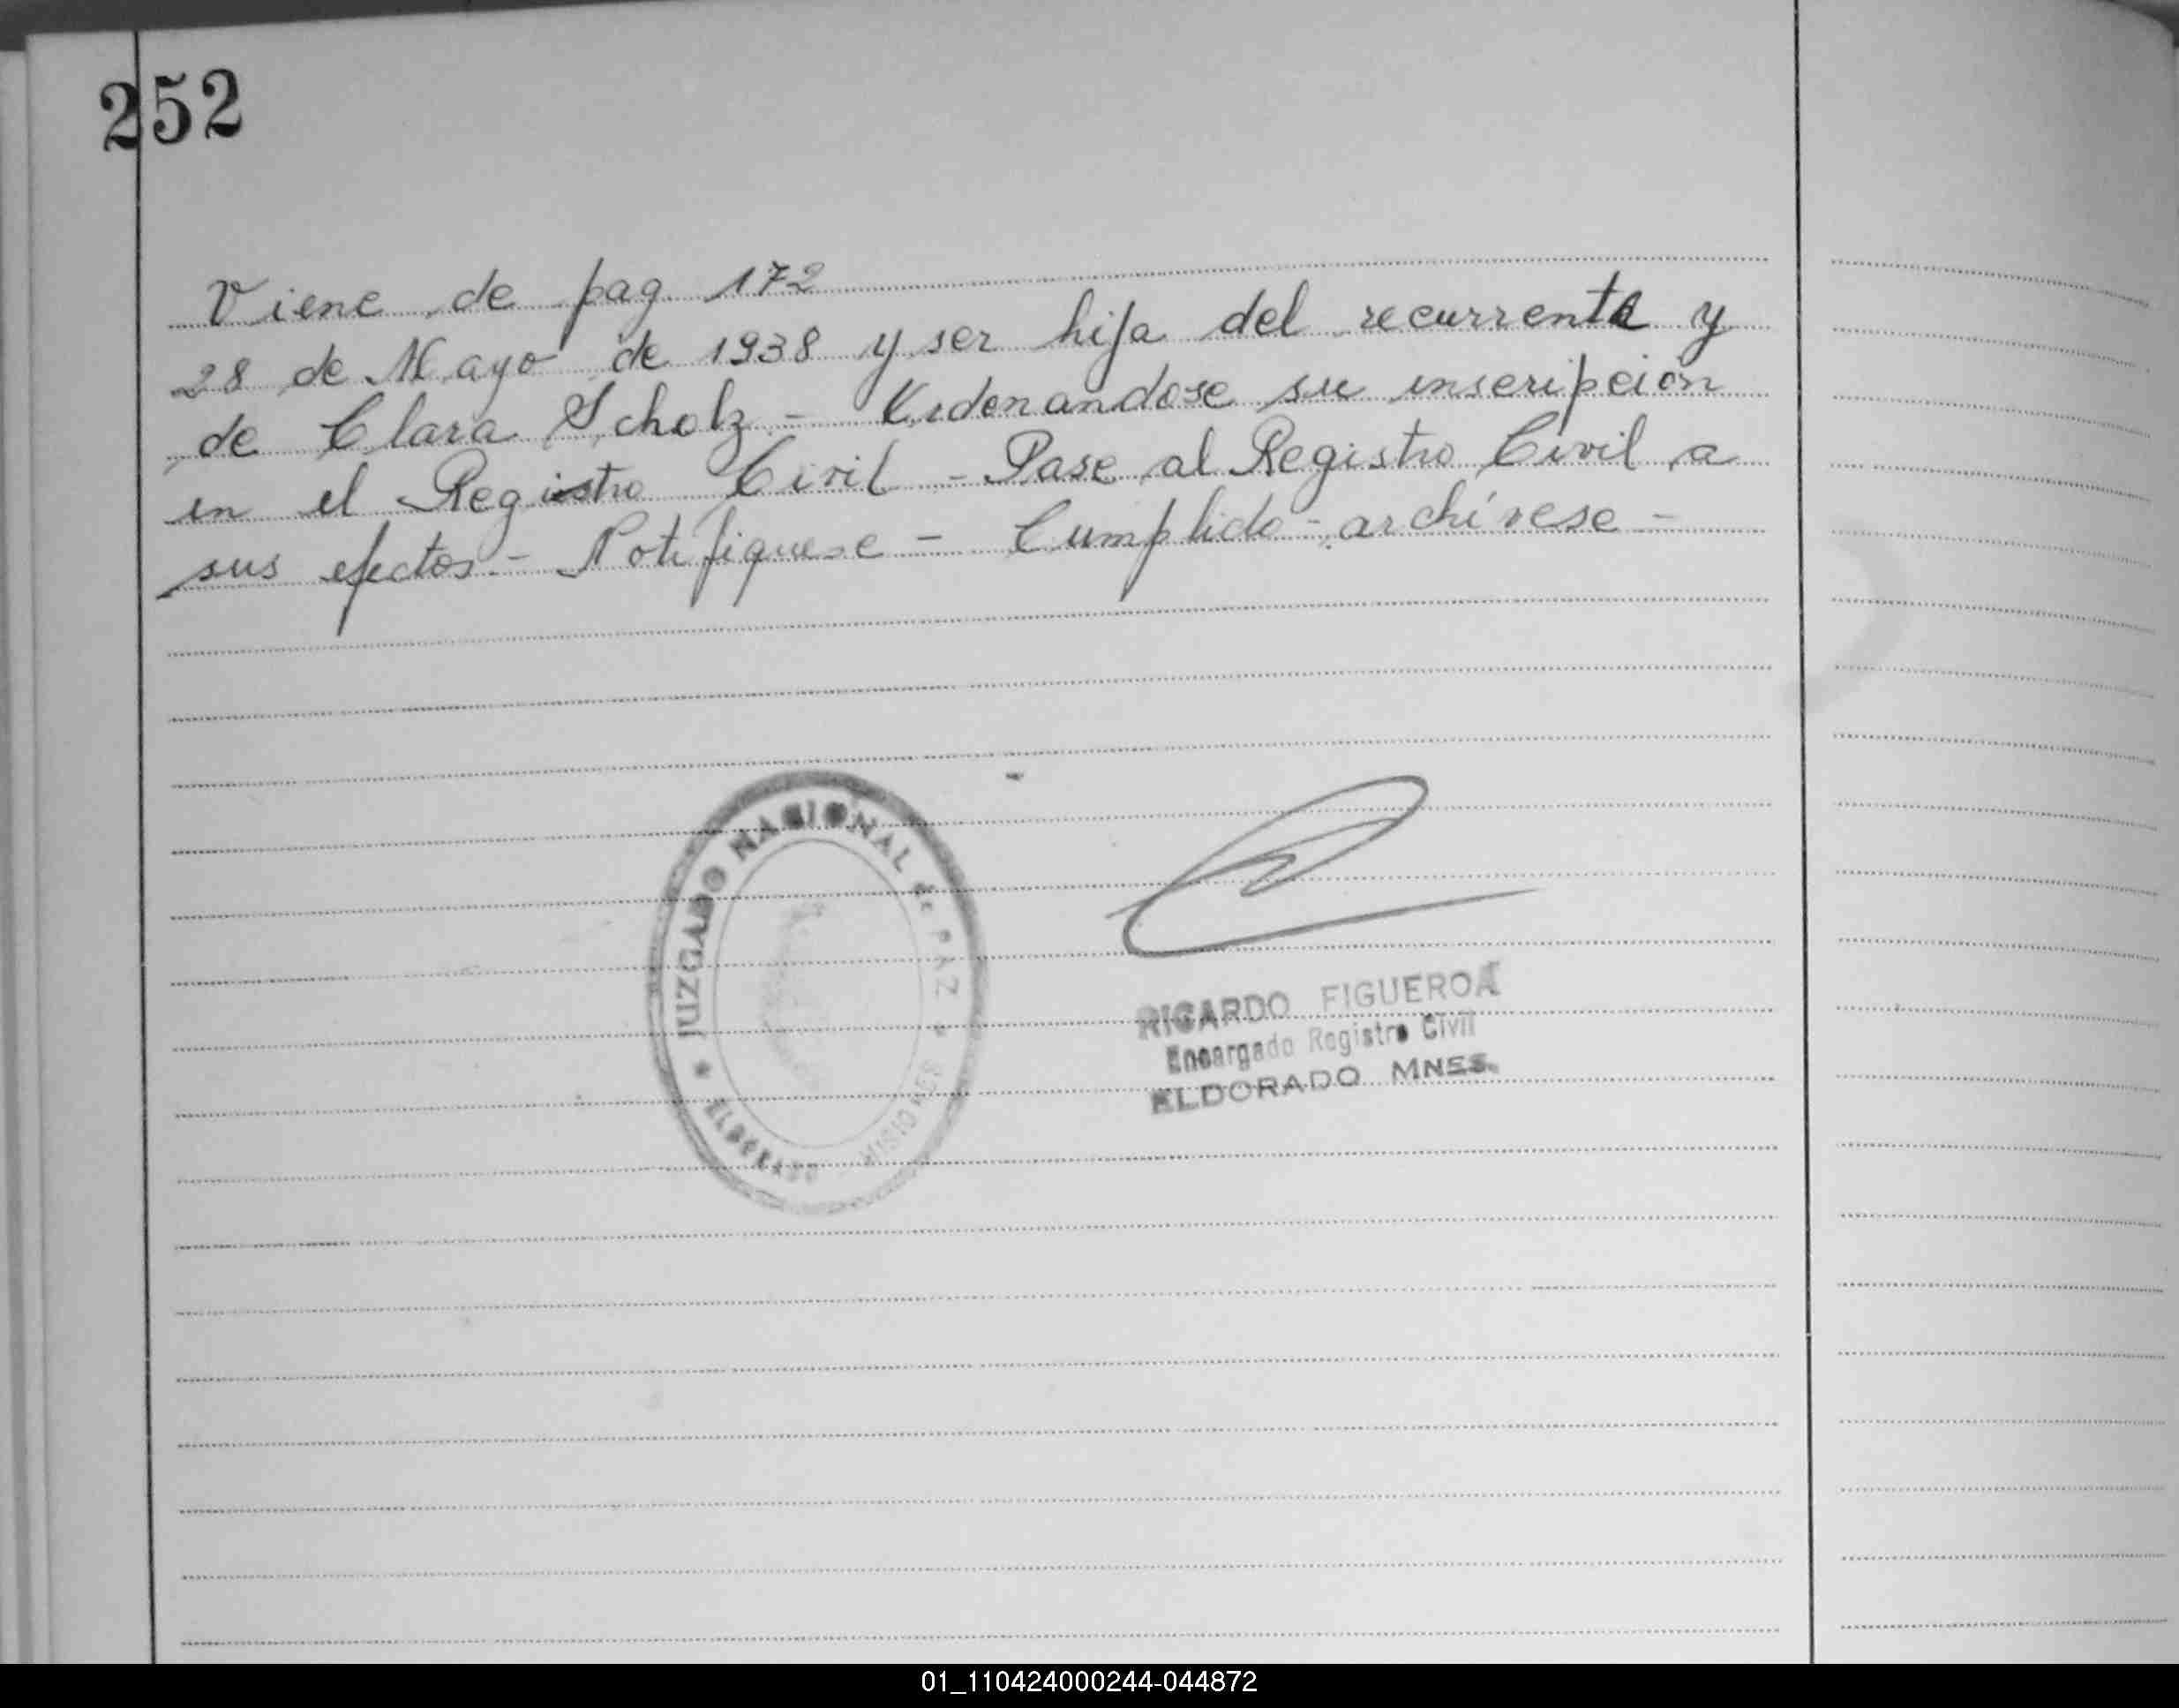 252
Viene de pag 172
28 de Mayo de 1938 y ser hija del recurrente y
de Clara Scholz - Ordenandose su inscripcion
en el Registro Civil - Pase al Registro Civil a
sus efectos - Notifiquese - Cumplido - archívese -
JUZGADO NACIONAL de PAZ
ELDORADO MISIONES
RICARDO FIGUEROA
Encargado Registro Civil
ELDORADO MNES.
01_110424000244-044872